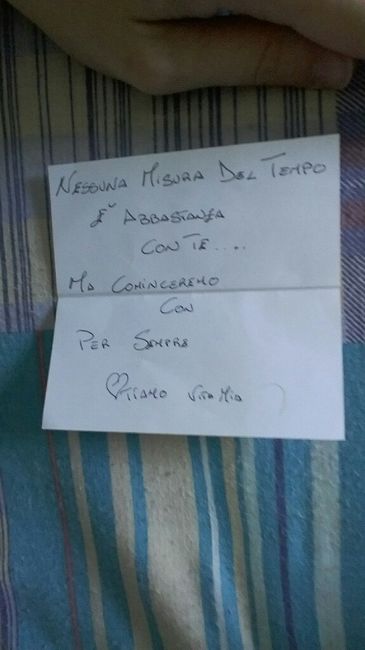 NESSUNA MISURA DEL TEMPO
E' ABBASTANZA
CON TE....
MA COMINCEREMO
CON
PER SEMPRE
♡ TIAMO VITA MIA